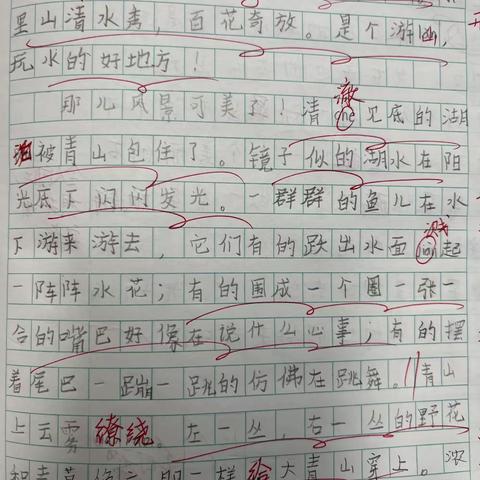 里山清水秀，百花奇放。是个游山
玩水的好地方！
那儿风景可美了！清澈见底的湖
泊被青山包住了。镜子似的湖水在阳
光底下闪闪发光。一群群的鱼儿在水
下游来游去，它们有的跌出水面溅起
一阵阵水花；有的围成一个圈一张一
合的嘴巴好像在说什么心事；有的摆
着尾巴一蹦一跳的仿佛在跳舞。青山
上云雾缭绕，左一丛，右一丛的野花
一样给大青山穿上。浓